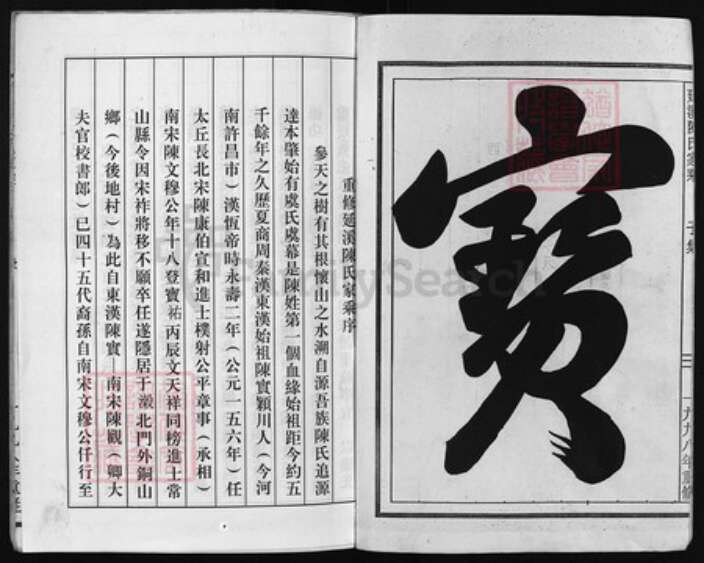 寶
子集
一九九八年重修
重修延溪陳氏家乘序
參天之樹有其根懷山之水溯自源吾族陳氏追源
達本肇始有虞氏虞幕是陳姓第一個血緣始祖距今約五
千餘年之久歷夏商周秦漢東漢始祖陳實穎川人（今河
南許昌市）漢恆帝時永壽二年（公元一五六年）任
太丘長北宋陳康伯宣和進士樸射公平章事（承相）
南宋陳文穆公年十八登寶祐丙辰文天祥同榜進士常
山縣令因宋祚將移不願卒任遂隱居于瀫北門外銅山
鄉（今後地村）為此自東漢陳實—南宋陳觀（卿大
夫官校書郎）已四十五代裔孫自南宋文穆公仟行至